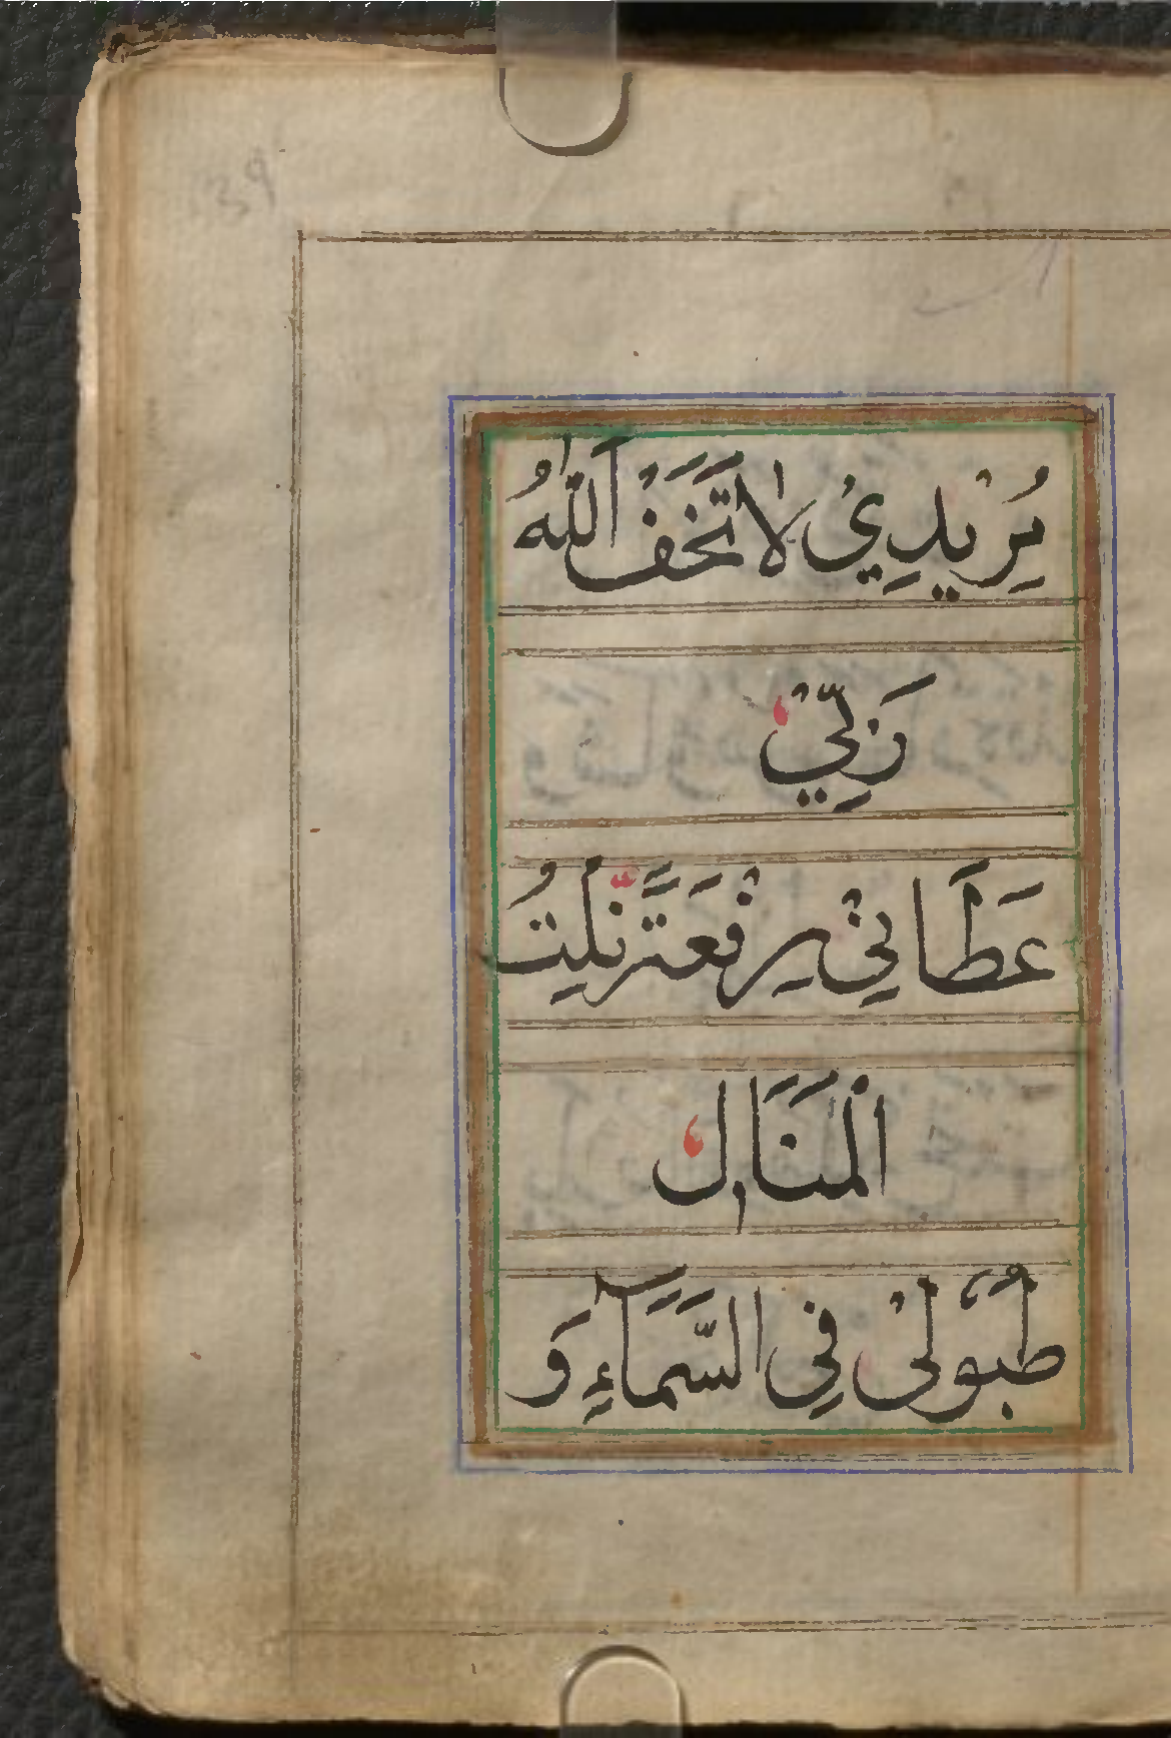 39
مُرِيْدِيْ لَا تَخَفْ اَللّٰهُ
رَبِّيْ
عَطَانِيْ رِفْعَةً نِلْتُ
الْمَنَالِ
طُبُوْلِيْ فِي السَّمَآءِ وَ